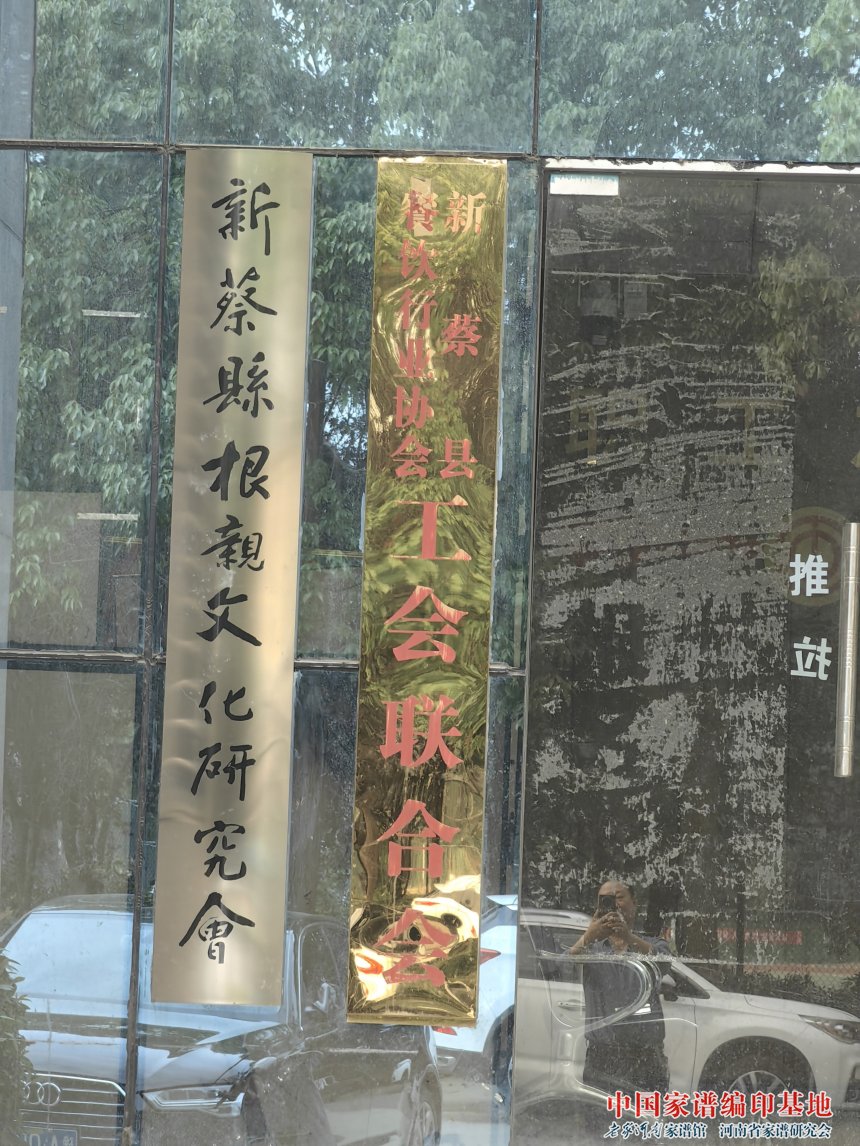 新蔡縣根親文化研究會
新蔡县
餐饮行业协会
工会联合会
推
拉
职工
中国家谱编印基地
家谱馆 河南省家谱研究会